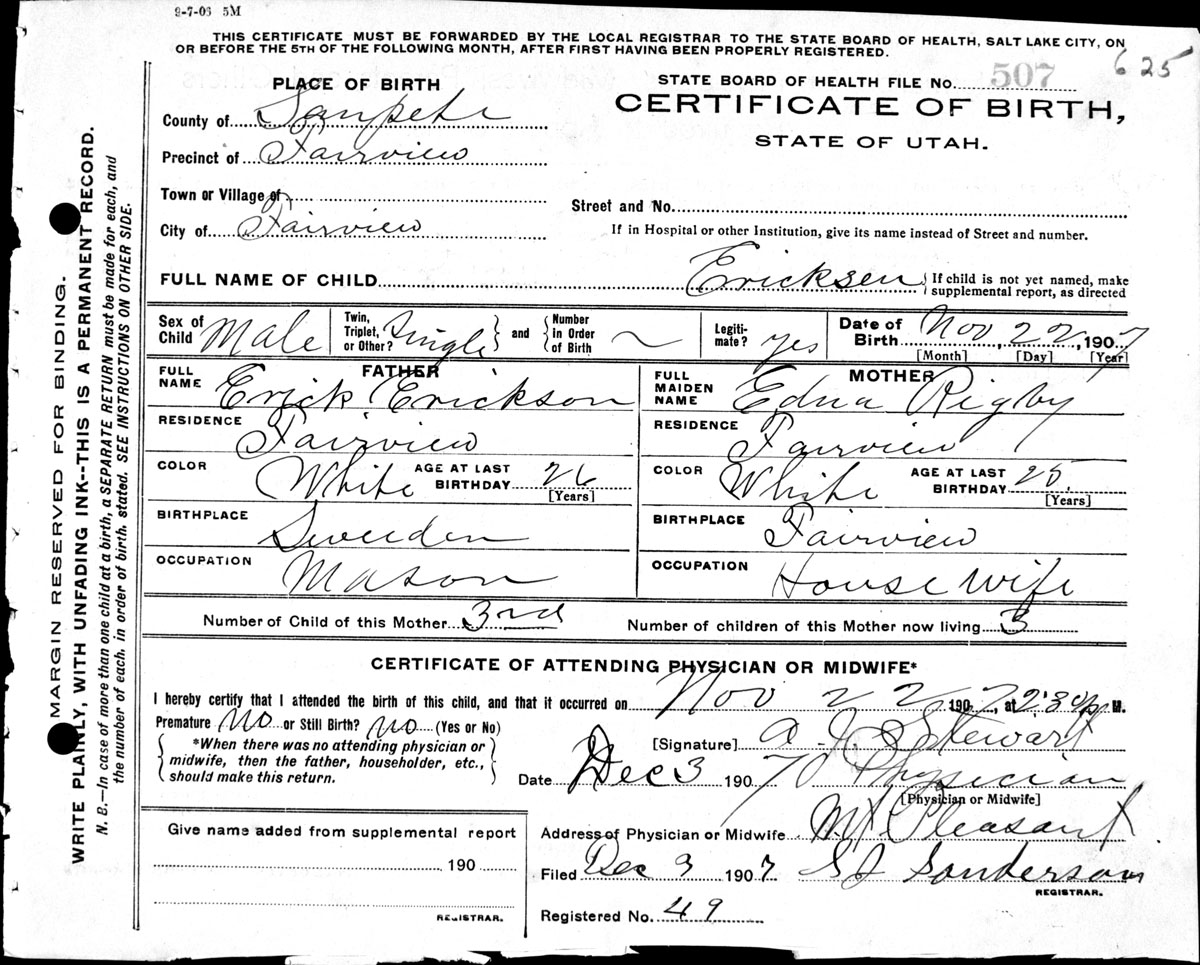 9-7-06 5M
THIS CERTIFICATE MUST BE FORWARDED BY THE LOCAL REGISTRAR TO THE STATE BOARD OF HEALTH, SALT LAKE CITY, ON
OR BEFORE THE 5TH OF THE FOLLOWING MONTH, AFTER FIRST HAVING BEEN PROPERLY REGISTERED.
MARGIN RESERVED FOR BINDING.
WRITE PLAINLY, WITH UNFADING INK--THIS IS A PERMANENT RECORD.
N. B.—In case of more than one child at a birth, a SEPARATE RETURN must be made for each, and
the number of each, in order of birth, stated. SEE INSTRUCTIONS ON OTHER SIDE.
PLACE OF BIRTH
County of Sanpete
Precinct of Fairview
Town or Village of
City of Fairview
STATE BOARD OF HEALTH FILE No. 507 625
CERTIFICATE OF BIRTH,
STATE OF UTAH.
Street and No.
If in Hospital or other Institution, give its name instead of Street and number.
FULL NAME OF CHILD Ericksen { If child is not yet named, make
supplemental report, as directed
Sex of Child Male
Twin, Triplet, or Other? Single } and { Number in Order of Birth ~
Legitimate? yes
Date of Birth Nov, 22, 1907
[Month] [Day] [Year]
FATHER
FULL NAME Erick Erickson
RESIDENCE Fairview
COLOR White AGE AT LAST BIRTHDAY 26
[Years]
BIRTHPLACE Sweeden
OCCUPATION Mason
MOTHER
FULL MAIDEN NAME Edna Rigby
RESIDENCE Fairview
COLOR White AGE AT LAST BIRTHDAY 25
[Years]
BIRTHPLACE Fairview
OCCUPATION House Wife
Number of Child of this Mother 3rd Number of children of this Mother now living 3
CERTIFICATE OF ATTENDING PHYSICIAN OR MIDWIFE*
I hereby certify that I attended the birth of this child, and that it occurred on Nov 22 1907, at 2:30 P M.
Premature No or Still Birth? No (Yes or No)
{ *When there was no attending physician or
midwife, then the father, householder, etc.,
should make this return. }
[Signature] A. J. Stewart
Date Dec 3 1907 Physician
[Physician or Midwife]
Give name added from supplemental report
190
REGISTRAR.
Address of Physician or Midwife Mt Pleasant
Filed Dec 3 1907 S J Sanderson
REGISTRAR.
Registered No. 49